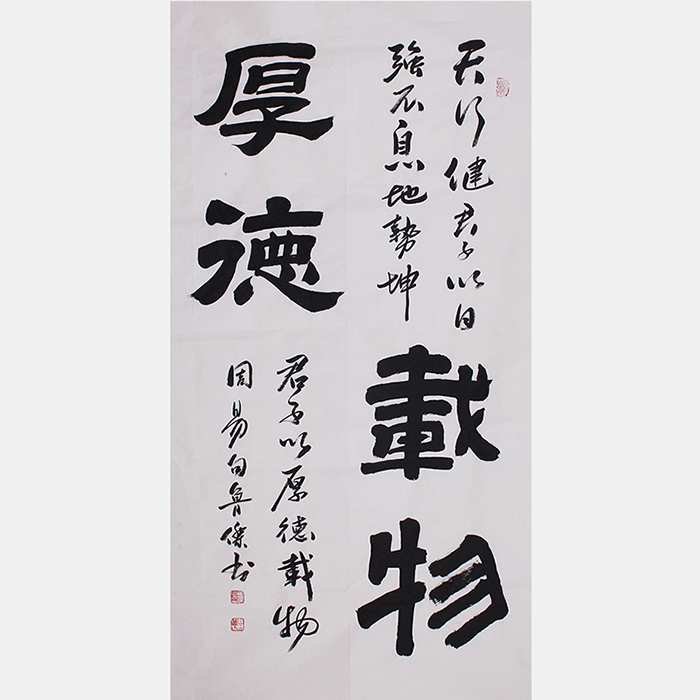 厚德
載物
天行健君子以自
強不息地勢坤
君子以厚德載物
周易句魯傑书